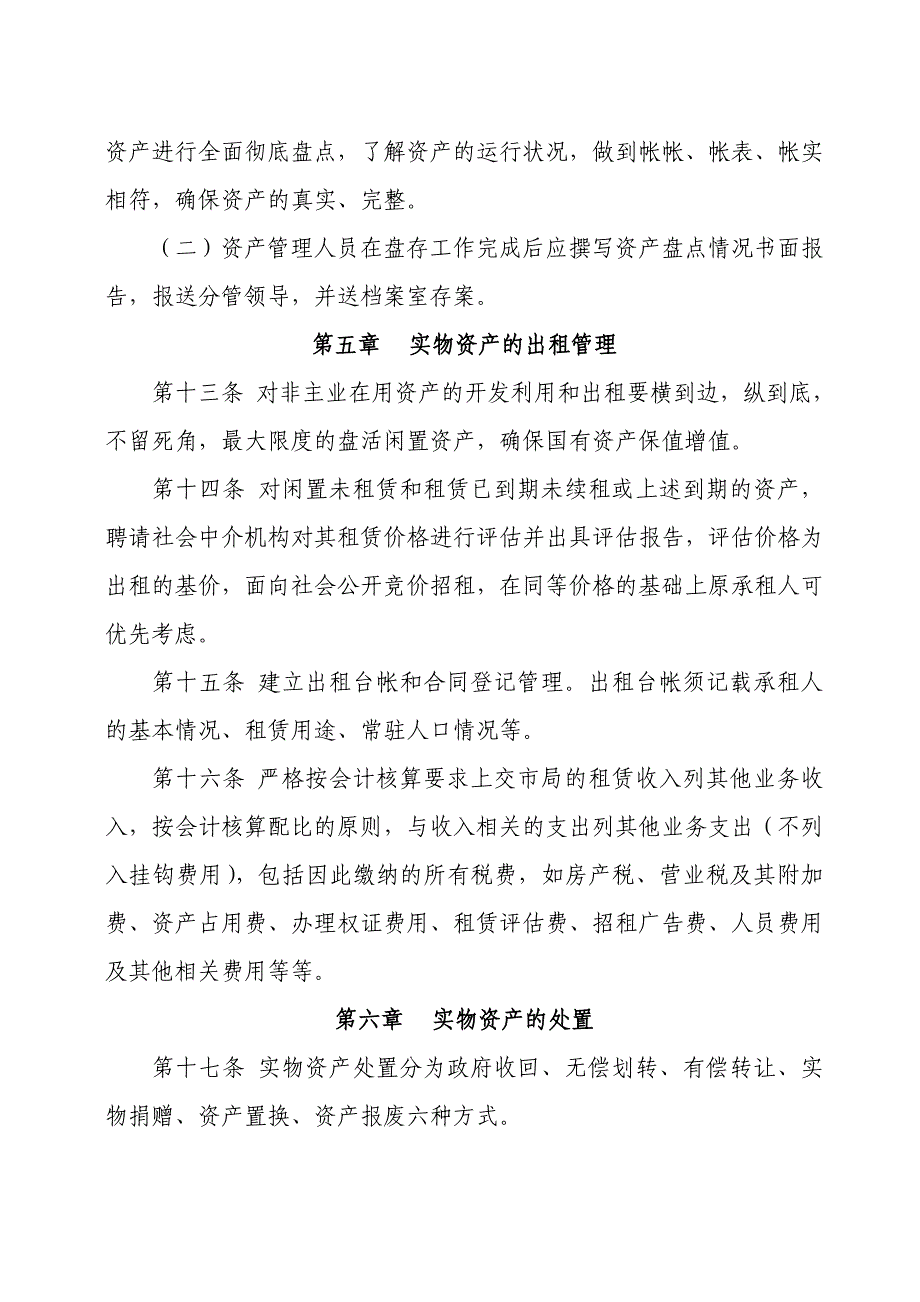 资产进行全面彻底盘点，了解资产的运行状况，做到帐帐、帐表、帐实
相符，确保资产的真实、完整。
（二）资产管理人员在盘存工作完成后应撰写资产盘点情况书面报
告，报送分管领导，并送档案室存案。
第五章 实物资产的出租管理
第十三条 对非主业在用资产的开发利用和出租要横到边，纵到底，
不留死角，最大限度的盘活闲置资产，确保国有资产保值增值。
第十四条 对闲置未租赁和租赁已到期未续租或上述到期的资产，
聘请社会中介机构对其租赁价格进行评估并出具评估报告，评估价格为
出租的基价，面向社会公开竞价招租，在同等价格的基础上原承租人可
优先考虑。
第十五条 建立出租台帐和合同登记管理。出租台帐须记载承租人
的基本情况、租赁用途、常驻人口情况等。
第十六条 严格按会计核算要求上交市局的租赁收入列其他业务收
入，按会计核算配比的原则，与收入相关的支出列其他业务支出（不列
入挂钩费用），包括因此缴纳的所有税费，如房产税、营业税及其附加
费、资产占用费、办理权证费用、租赁评估费、招租广告费、人员费用
及其他相关费用等等。
第六章 实物资产的处置
第十七条 实物资产处置分为政府收回、无偿划转、有偿转让、实
物捐赠、资产置换、资产报废六种方式。